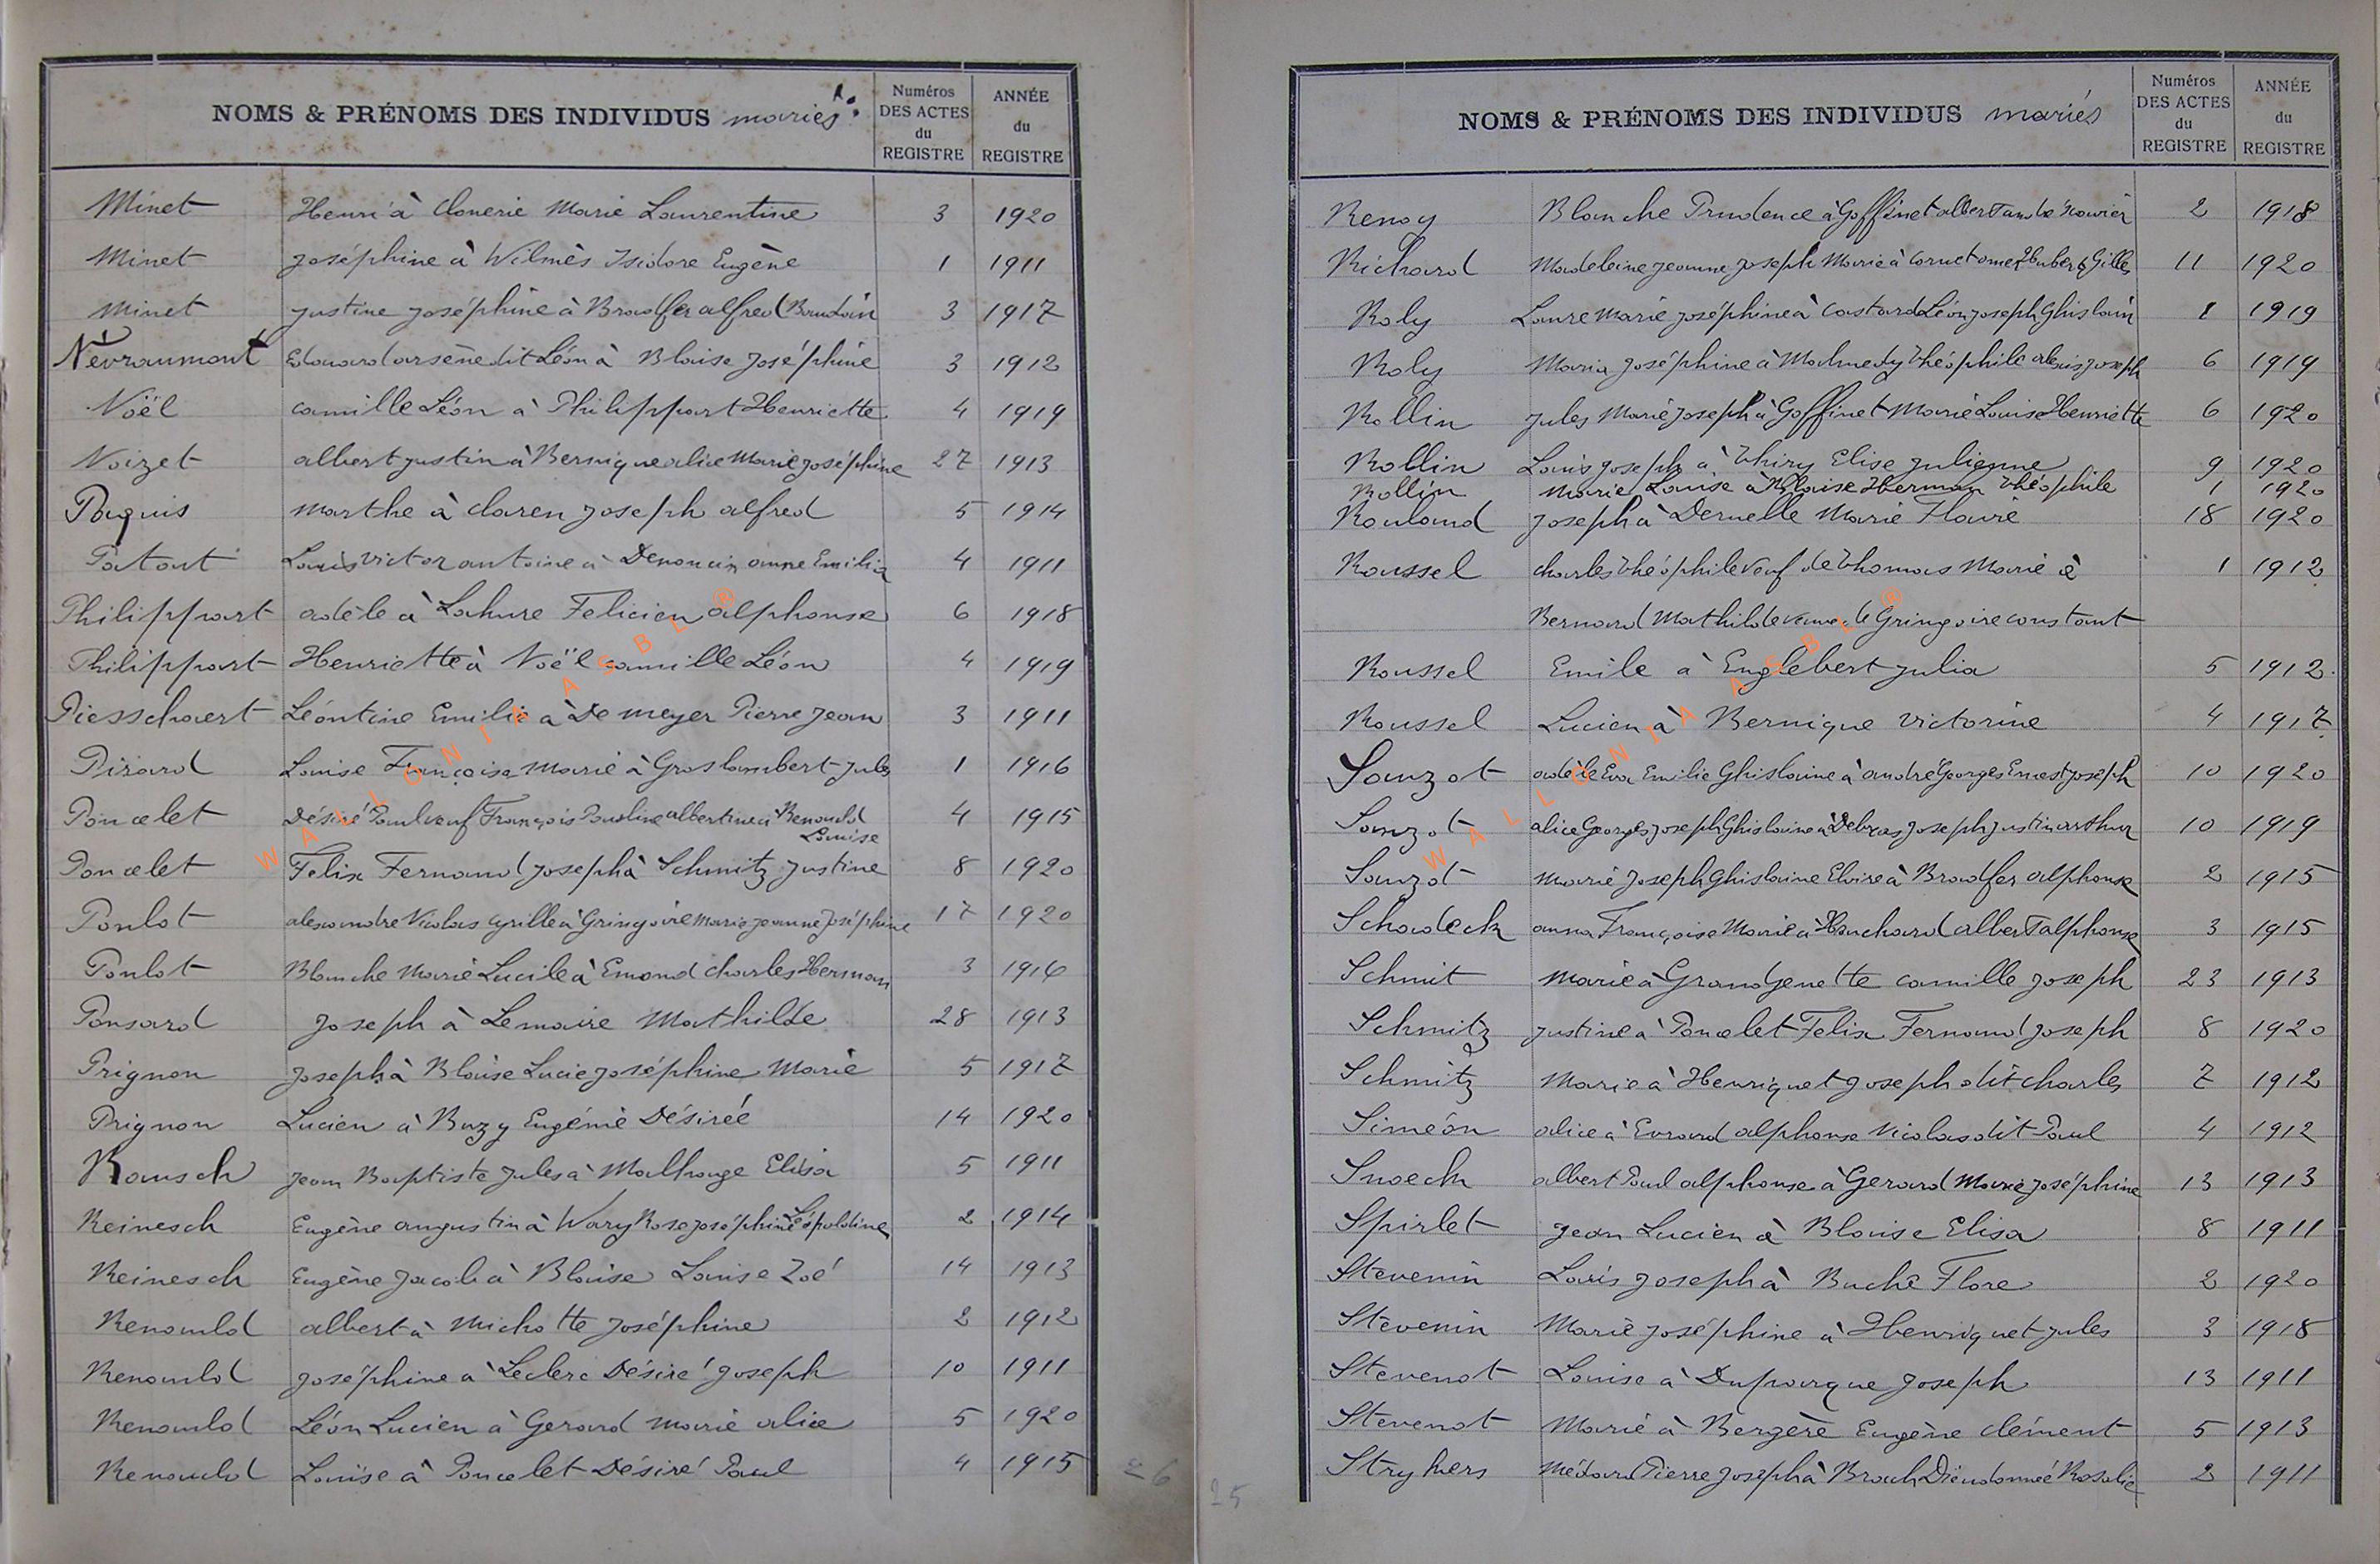 NOMS & PRÉNOMS DES INDIVIDUS mariés
Numéros DES ACTES du REGISTRE
ANNÉE du REGISTRE
Minet Henri à Clonerie Marie Laurentine 3 1920
Minet Joséphine à Wilmès Isidore Eugène 1 1911
Minet Justine Joséphine à Bradfer alfred Baudoin 3 1917
Névraumont Edouard arsène dit Léon à Blaise Joséphine 3 1912
Noël camille Léon à Philippart Henriette 4 1919
Noizet albert justin à Bernique alice Marie joséphine 27 1913
Paquis Marthe à claren Joseph alfred 5 1914
Patout Louis victor antoine à Denoncin anne Emilia 4 1911
Philippart adèle à Lahure Felicien alphonse 6 1918
Philippart Henriette à Noël camille Léon 4 1919
Piesschaert Léontine Emilie à De meyer Pierre Jean 3 1911
Pirard Louise Françoise Marie à Groslambert Jules 1 1916
Poncelet Désiré Paul veuf François Pauline albertine à Renauld Louise 4 1915
Poncelet Felix Fernand Joseph à Schmitz Justine 8 1920
Poulot alexandre Nicolas cyrille à Gringoire Marie jeanne Joséphine 17 1920
Poulot Blanche Marie Lucile à Emond charles Herman 3 1916
Ponsard Joseph à Lemaire Mathilde 28 1913
Prignon Joseph à Blaise Lucie joséphine Marie 5 1917
Prignon Lucien à Buzy Eugénie Désirée 14 1920
Rausch Jean Baptiste Jules à Malhage Elisa 5 1911
Reinesch Eugène augustin à Wary Rose joséphine Léopoldine 2 1914
Reinesch Eugène Jacob à Blaise Louise Zoé 14 1913
Renauld albert à Michotte Joséphine 2 1912
Renauld Joséphine à Leclerc Désiré Joseph 10 1911
Renauld Léon Lucien à Gerard Marie alice 5 1920
Renauld Louise à Poncelet Désiré Paul 4 1915
26
NOMS & PRÉNOMS DES INDIVIDUS mariés
Numéros DES ACTES du REGISTRE
ANNÉE du REGISTRE
Renoy Blanche Prudence à Goffinet albert 2 1918
Richard Madeleine Jeanne Joseph Marie à Cornet omer Hubert Gilles 11 1920
Roly Laure Marie Joséphine à Castard Léon Joseph Ghislain 1 1919
Roly Maria Joséphine à Malmedy théophile alexis joseph 6 1919
Rollin Jules Marie Joseph à Goffinet Marie Louise Henriette 6 1920
Rollin Louis Joseph à Thiry Elise Julienne 9 1920
Rollin Marie Louise à Blaise Herman théophile 1 1920
Rouland Joseph à Deruelle Marie Flavie 18 1920
Roussel charles théophile veuf de thomas Marie à 1 1912
Bernard Mathilde veuve de Gringoire constant
Roussel Emile à Englebert Julia 5 1912
Roussel Lucien à Bernique victorine 4 1917
Sauzot adèle Eva Emilie Ghislaine à andré Georges Ernest Joseph 10 1920
Sauzot alice Georges Joseph Ghislaine à Debras Joseph justin arthur 10 1919
Sauzot Marie Joseph Ghislaine Elvire à Bradfer alphonse 2 1915
Schadeck anna Françoise Marie à Hauchard albert alphonse 3 1915
Schmit Marie à Grandjenette camille Joseph 23 1913
Schmitz Justine à Poncelet Felix Fernand Joseph 8 1920
Schmitz Marie à Henriquet Joseph dit charles 7 1912
Siméon alice à Evrard alphonse Nicolas dit Paul 4 1912
Snoeck albert Paul alphonse à Gerard Marie Joséphine 13 1913
Spirlet Jean Lucien à Blaise Elisa 8 1911
Stevenin Louis Joseph à Buche Flore 2 1920
Stévenin Marie Joséphine à Henriquet Jules 3 1918
Stevenot Louise à Dupourque Joseph 13 1911
Stevenot Marie à Bergère Eugène clément 5 1913
Strykers Médard Pierre Joseph à Brach Dieudonnée Rosalie 2 1911
25
WALLONIA ASBL ®
WALLONIA ASBL ®